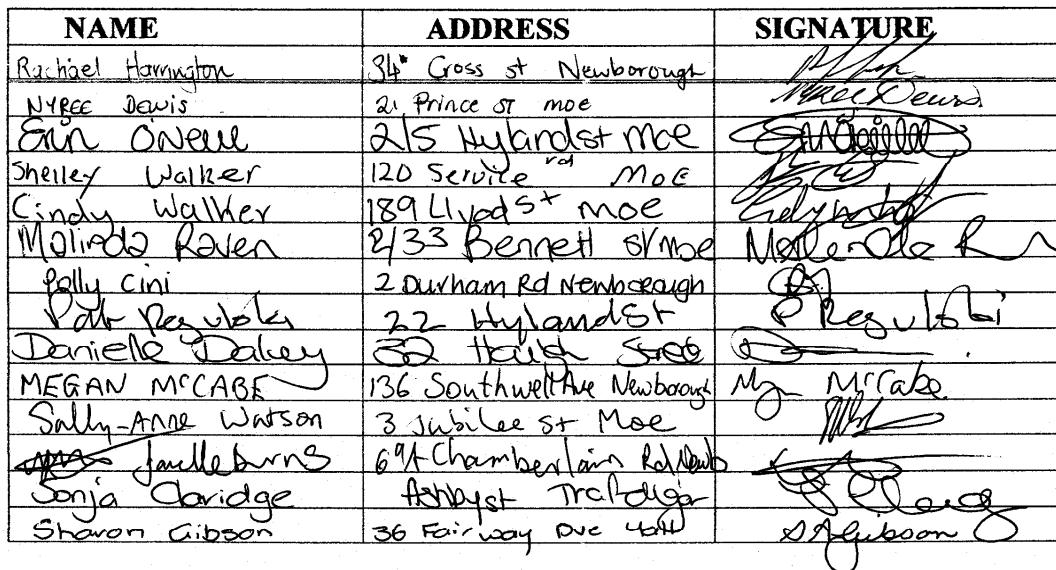 NAME ADDRESS SIGNATURE
Rachael Harrington 34 Cross st Newborough
NYREE DEWIS 21 Prince ST moe Nyree Dewis
Erin O'Neill 2/5 Hyland st Moe
Shelley Walker 120 Service rd MOE
Cindy Walker 189 Llyod St moe
Malinda Raven 2/33 Bennett st moe
Polly Cini 2 Durham Rd Newborough
Pat Regulski 22 Hyland St P Regulski
Danielle Dakey Haigh Street
MEGAN McCABE 136 Southwell Ave Newborough McCabe
Sally-Anne Watson 3 Jubilee St Moe
Janelle Burns 69A Chamberlain Rd Newb
Sonja Claridge Ashby st Trafalgar
Sharon Gibson 36 Fairway Dve S A Gibson